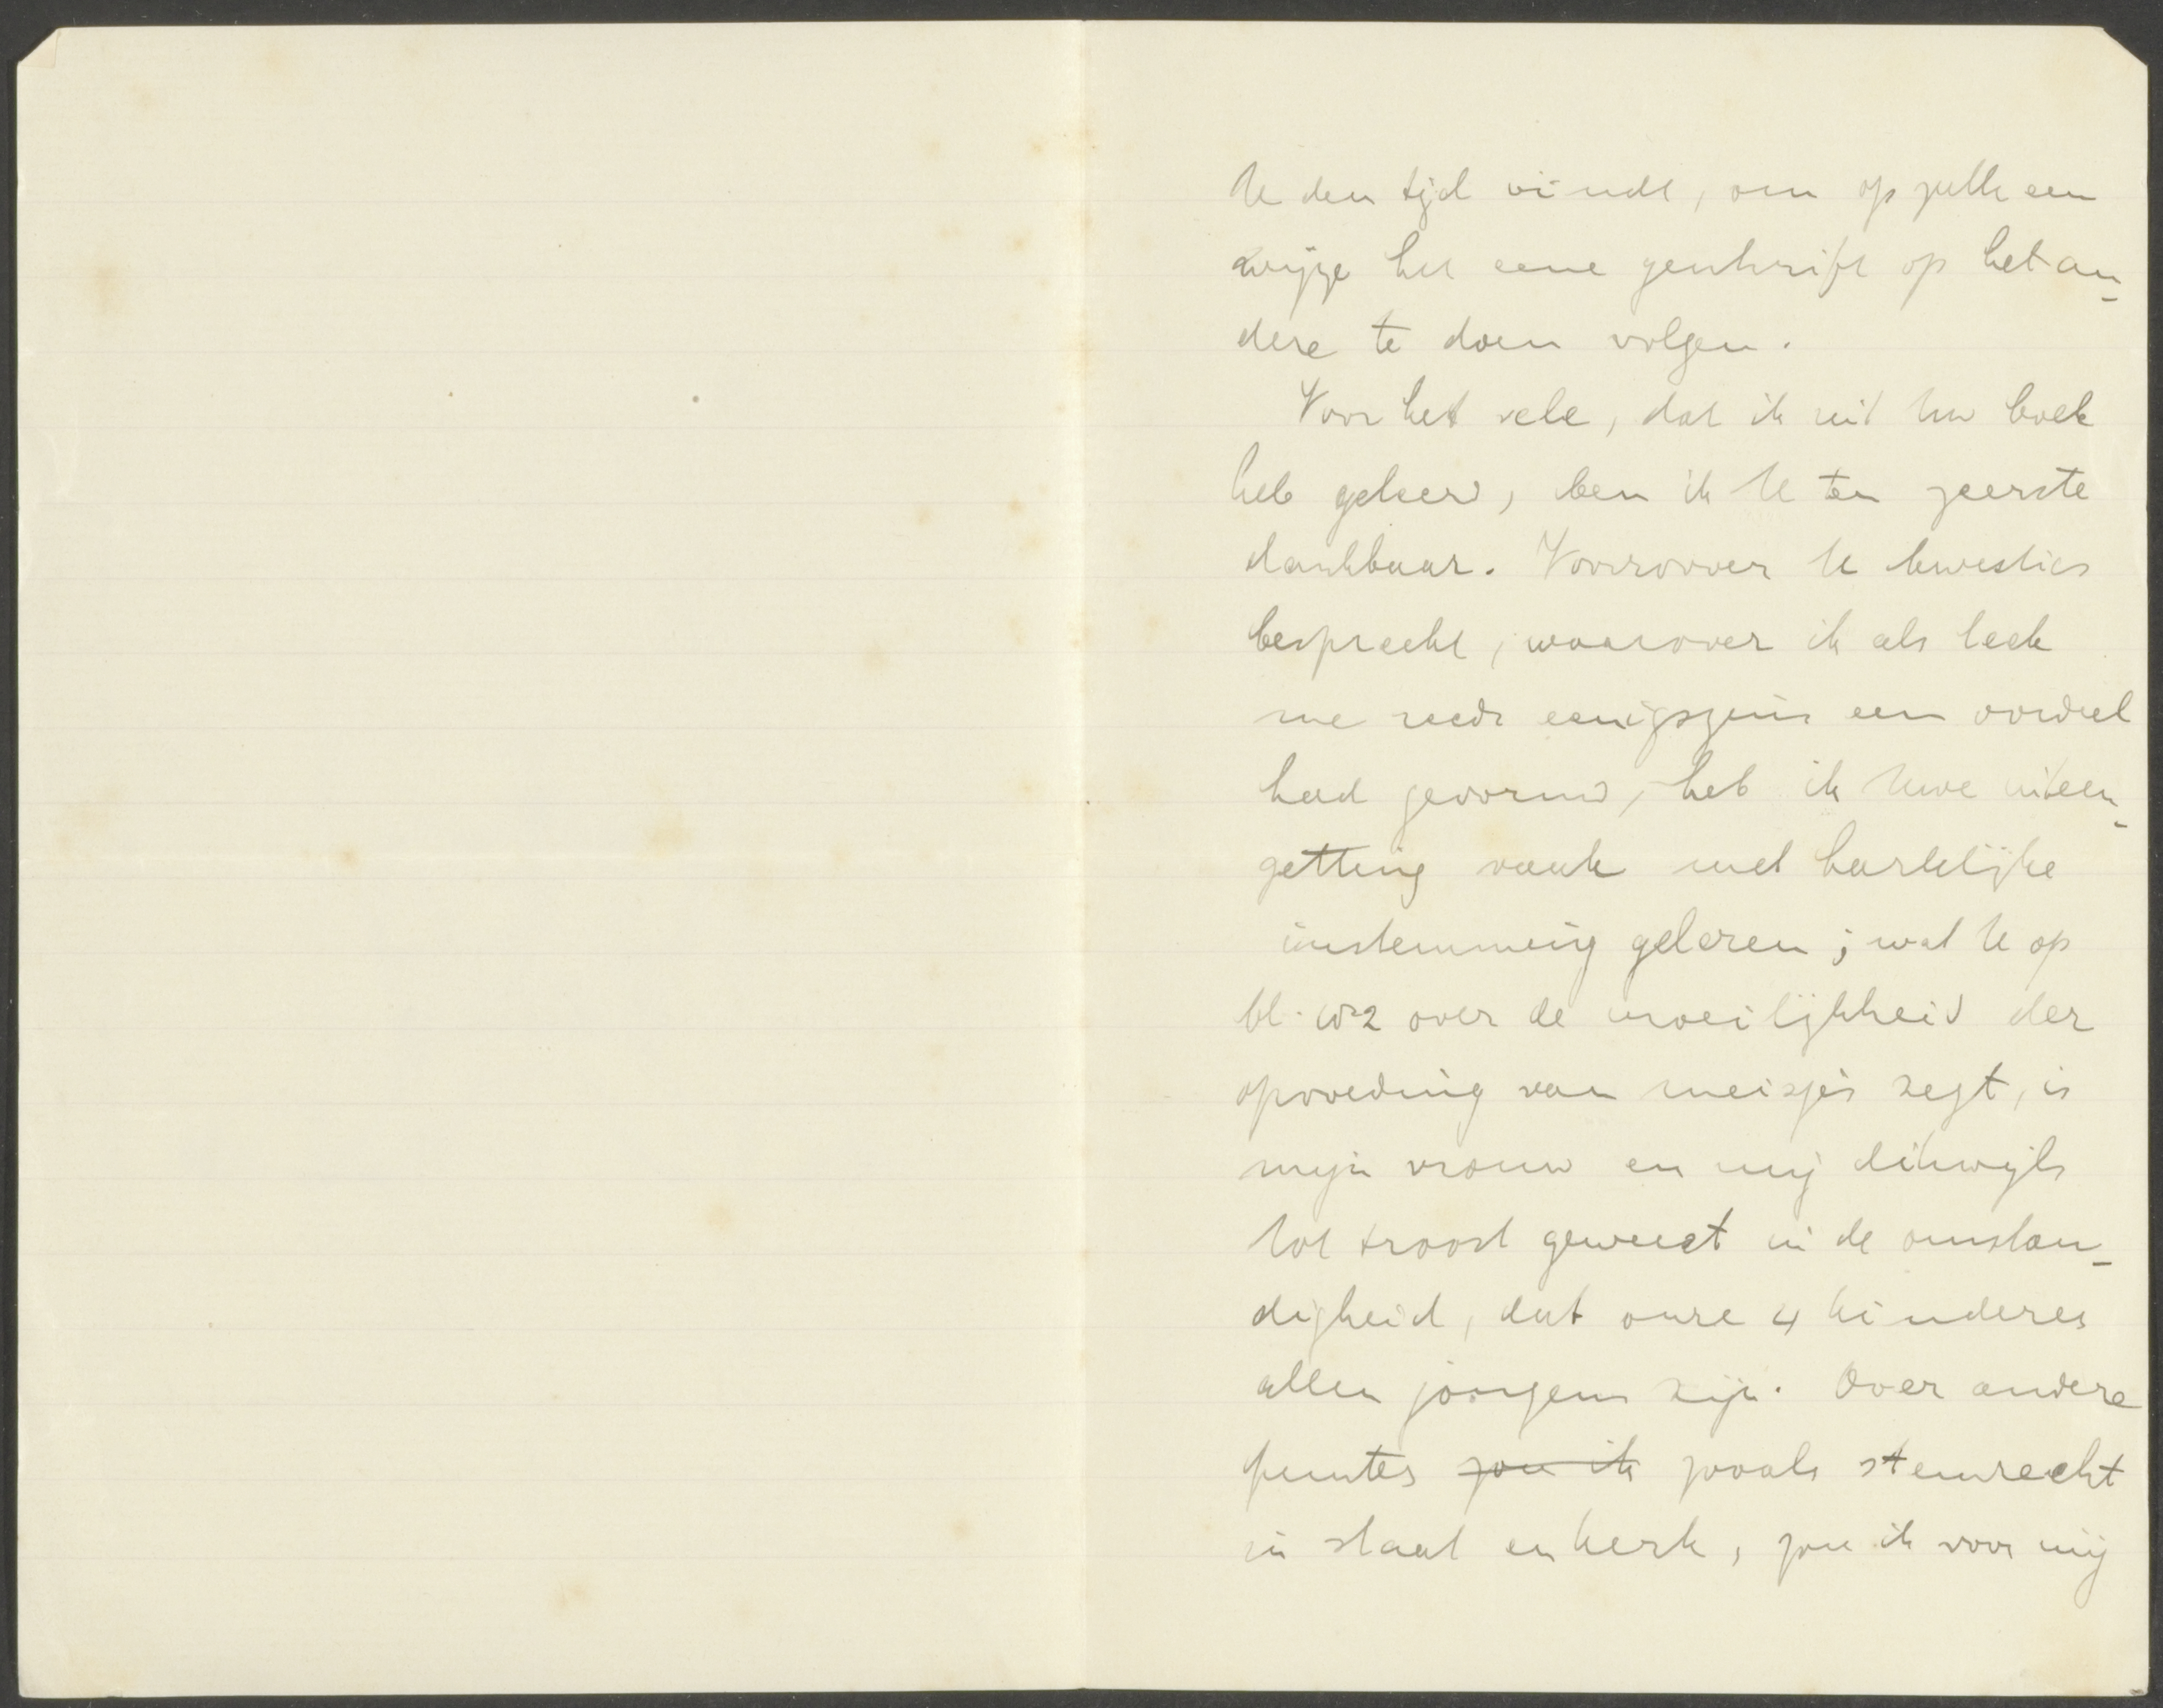 U den tijd vindt, om op zulk een
wijze het eene geschrift op het an-
dere te doen volgen.
Voor het vele, dat ik uit Uw boek
heb geleerd, ben ik U ten zeerste
dankbaar. Voorzoover U kwesties
bespreekt, waarover ik als leek
me reeds eenigszins een oordeel
had gevormd, heb ik Uwe uiteen-
zetting vaak met hartelijke
instemming gelezen; wat U op
bl. over de moeilijkheid der
opvoeding van meisjes zegt, is
mijn vrouw en mij dikwijls
tot troost geweest in de omstan-
digheid, dat onze 4 kinderen
allen jongens zijn. Over andere
punten zou ik zooals stemrecht
in staat en kerk, zou ik voor mij